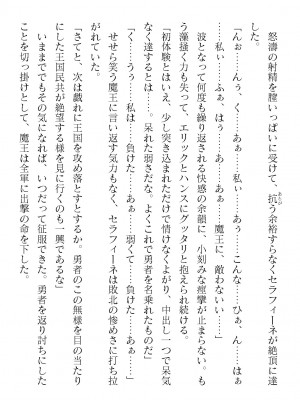 怒濤の射精を膣いっぱいに受けて、抗う余裕すらなくセラフィーネが絶頂に達
した。
「んぉ……んぅ、……あぁ……私ぃ……あぅ……こんな……ひぁ、ん……はぁ
……私ぃ……ふぁ、はぅ……あぁ……魔王に、敵わない……」
波となって何度も繰り返される快感の余韻に、小刻みな痙攣が止まらない。も
う藻掻く力も失って、エリックとハンスにグッタリと抱えられ続ける。
「初体験とはいえ、少し突き込まれただけで情けなくよがり、中出し一つで呆気
なく達するとは……。呆れた弱さだな。よくこれで勇者を名乗れたものだ」
「く……うぅ……私は……負けた……あぁ……弱くて……負けた……あぁ」
せせら笑う魔王に言い返す気力もなく、セラフィーネは敗北の惨めさに打ち拉
がれていた。
「さてと、次は戯れに王国を攻め落とすとするか。勇者のこの無様を目の当たり
にした王国民共が絶望する様を見に行くのも一興であるな」
いままででもその気になれば、いつだって征服できた。勇者を返り討ちにした
ことを切っ掛けとして、魔王は全軍に出撃の命を下した。